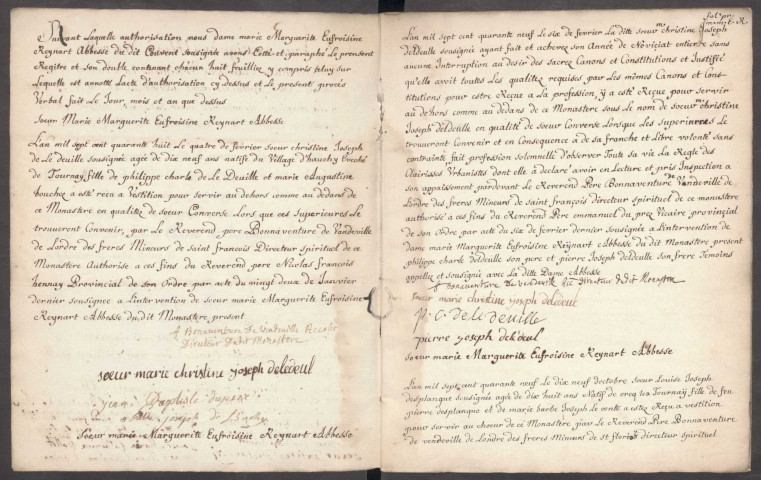 Suivant Laquelle authorisation nous dame marie Marguerite Eufroisine
Reynart Abbesse du dit Couvent sousignée avons Cotté et paraphé Le present
Regitre et son double contenant chacun huit fruilliez y compris celuy sur
Lequelle est annotté Lacte d'authorisation cy dessus et Le present procès
Verbal fait Le Jour, mois et an que dessus
Soeur Marie Marguerite Eufroisine Reynart Abbesse
Lan mil sept cent quarante huit Le quatre de fevrier soeur christine Joseph
de Le deuille sousignée agée de dix neuf ans natife du Village d'hauchy Evechè
de Tournay, fille de philippe charle de Le Deuille et marie Augustine
bouchez a estè reçu a Vestition pour servir au dehors comme au dedans de
ce Monastère en qualitez de soeur Converse Lors que ces Superieures Le
trouveront Convenir, par Le Reverend pere Bonnaventure de Vandeville
de Lordre des freres Mineurs de Saint francois Directeur spirituel de ce
Monastère Authorise a ces fins du Reverend pere Nicolas francois
hennay Provincial de son Ordre par acte du vingt deux de Janvier
dernier sousignee a Lintervention de soeur marie Marguerite Eufroisine
Reynart Abbesse du dit Monastère present
f Bonaventure De Vindeuille Recolet
Directeur Dudit Monastere
soeur marie christine joseph deledeul
jean Baptiste
joseph
Soeur marie Marguerite Eufroisine Reynart Abbesse
Lan mil sept cent quarante neuf Le six de fevrier La ditte soeur mie christine Joseph
deledeulle sousignée ayant fait et achevez son Année de Noviciat entier et sans
aucune Interruption au desir des sacrez Canons et Constitutions et Justifié
qu'elle avoit toutes Les qualitez requises par Les mêmes Canons et Cons-
titutions pour estre Reçue a La profession, y a esté Reçue pour servir
au dehors comme au dedans de ce Monastère sous Le nom de soeur mie christine
Joseph deledeulle en qualité de soeur Converse Lorsque Les superieures Le
trouveront Convenir et en Consequence a de sa franche et Libre volonté sans
contrainte fait profession solemnelle d'observer Toute sa vie La Regle des
Clairisses Urbanistes dont elle a declare avoir eu Lecture et pris Inspection a
son appaisement pardevant Le Reverend Père Bonnaventure de Vandeville de
Lordre des freres Mineurs de saint françois directeur spirituel de ce monastère
authorisé a ces fins du Reverend Père emmanuel du prez Vicaire provincial
de son Ordre par acte du six de fevrier dernier sousignée a Lintervention de
dame marie Marguerite Eufroisine Reynart Abbesse du dit Monastère, present
philippe charle deledeulle son pere et pierre Joseph deledeulle son frere Temoins
appellez et sousignés avec La ditte Dame Abbesse
f Bonaventure de vindeville Rec Directeur dudit Monastere
soeur marie christine joseph deledeul
P. C. de Le deuille
pierre joseph deledeul
soeur marie Marguerite Eufroisine Reynart Abbesse
Lan mil sept cent quarante neuf Le dix neuf doctobre soeur Louise Joseph
desplanque sousignée agée de dix huit ans Natif de creq lez Tournay fille de feu
pierre desplanque et de marie barbe Joseph Le conte a esté Reçu a vestition
pour servir au choeur de ce Monastère par Le Reverend Père Bonnaventure
de vendeville de Lordre des freres Mineurs de st directeur spirituel